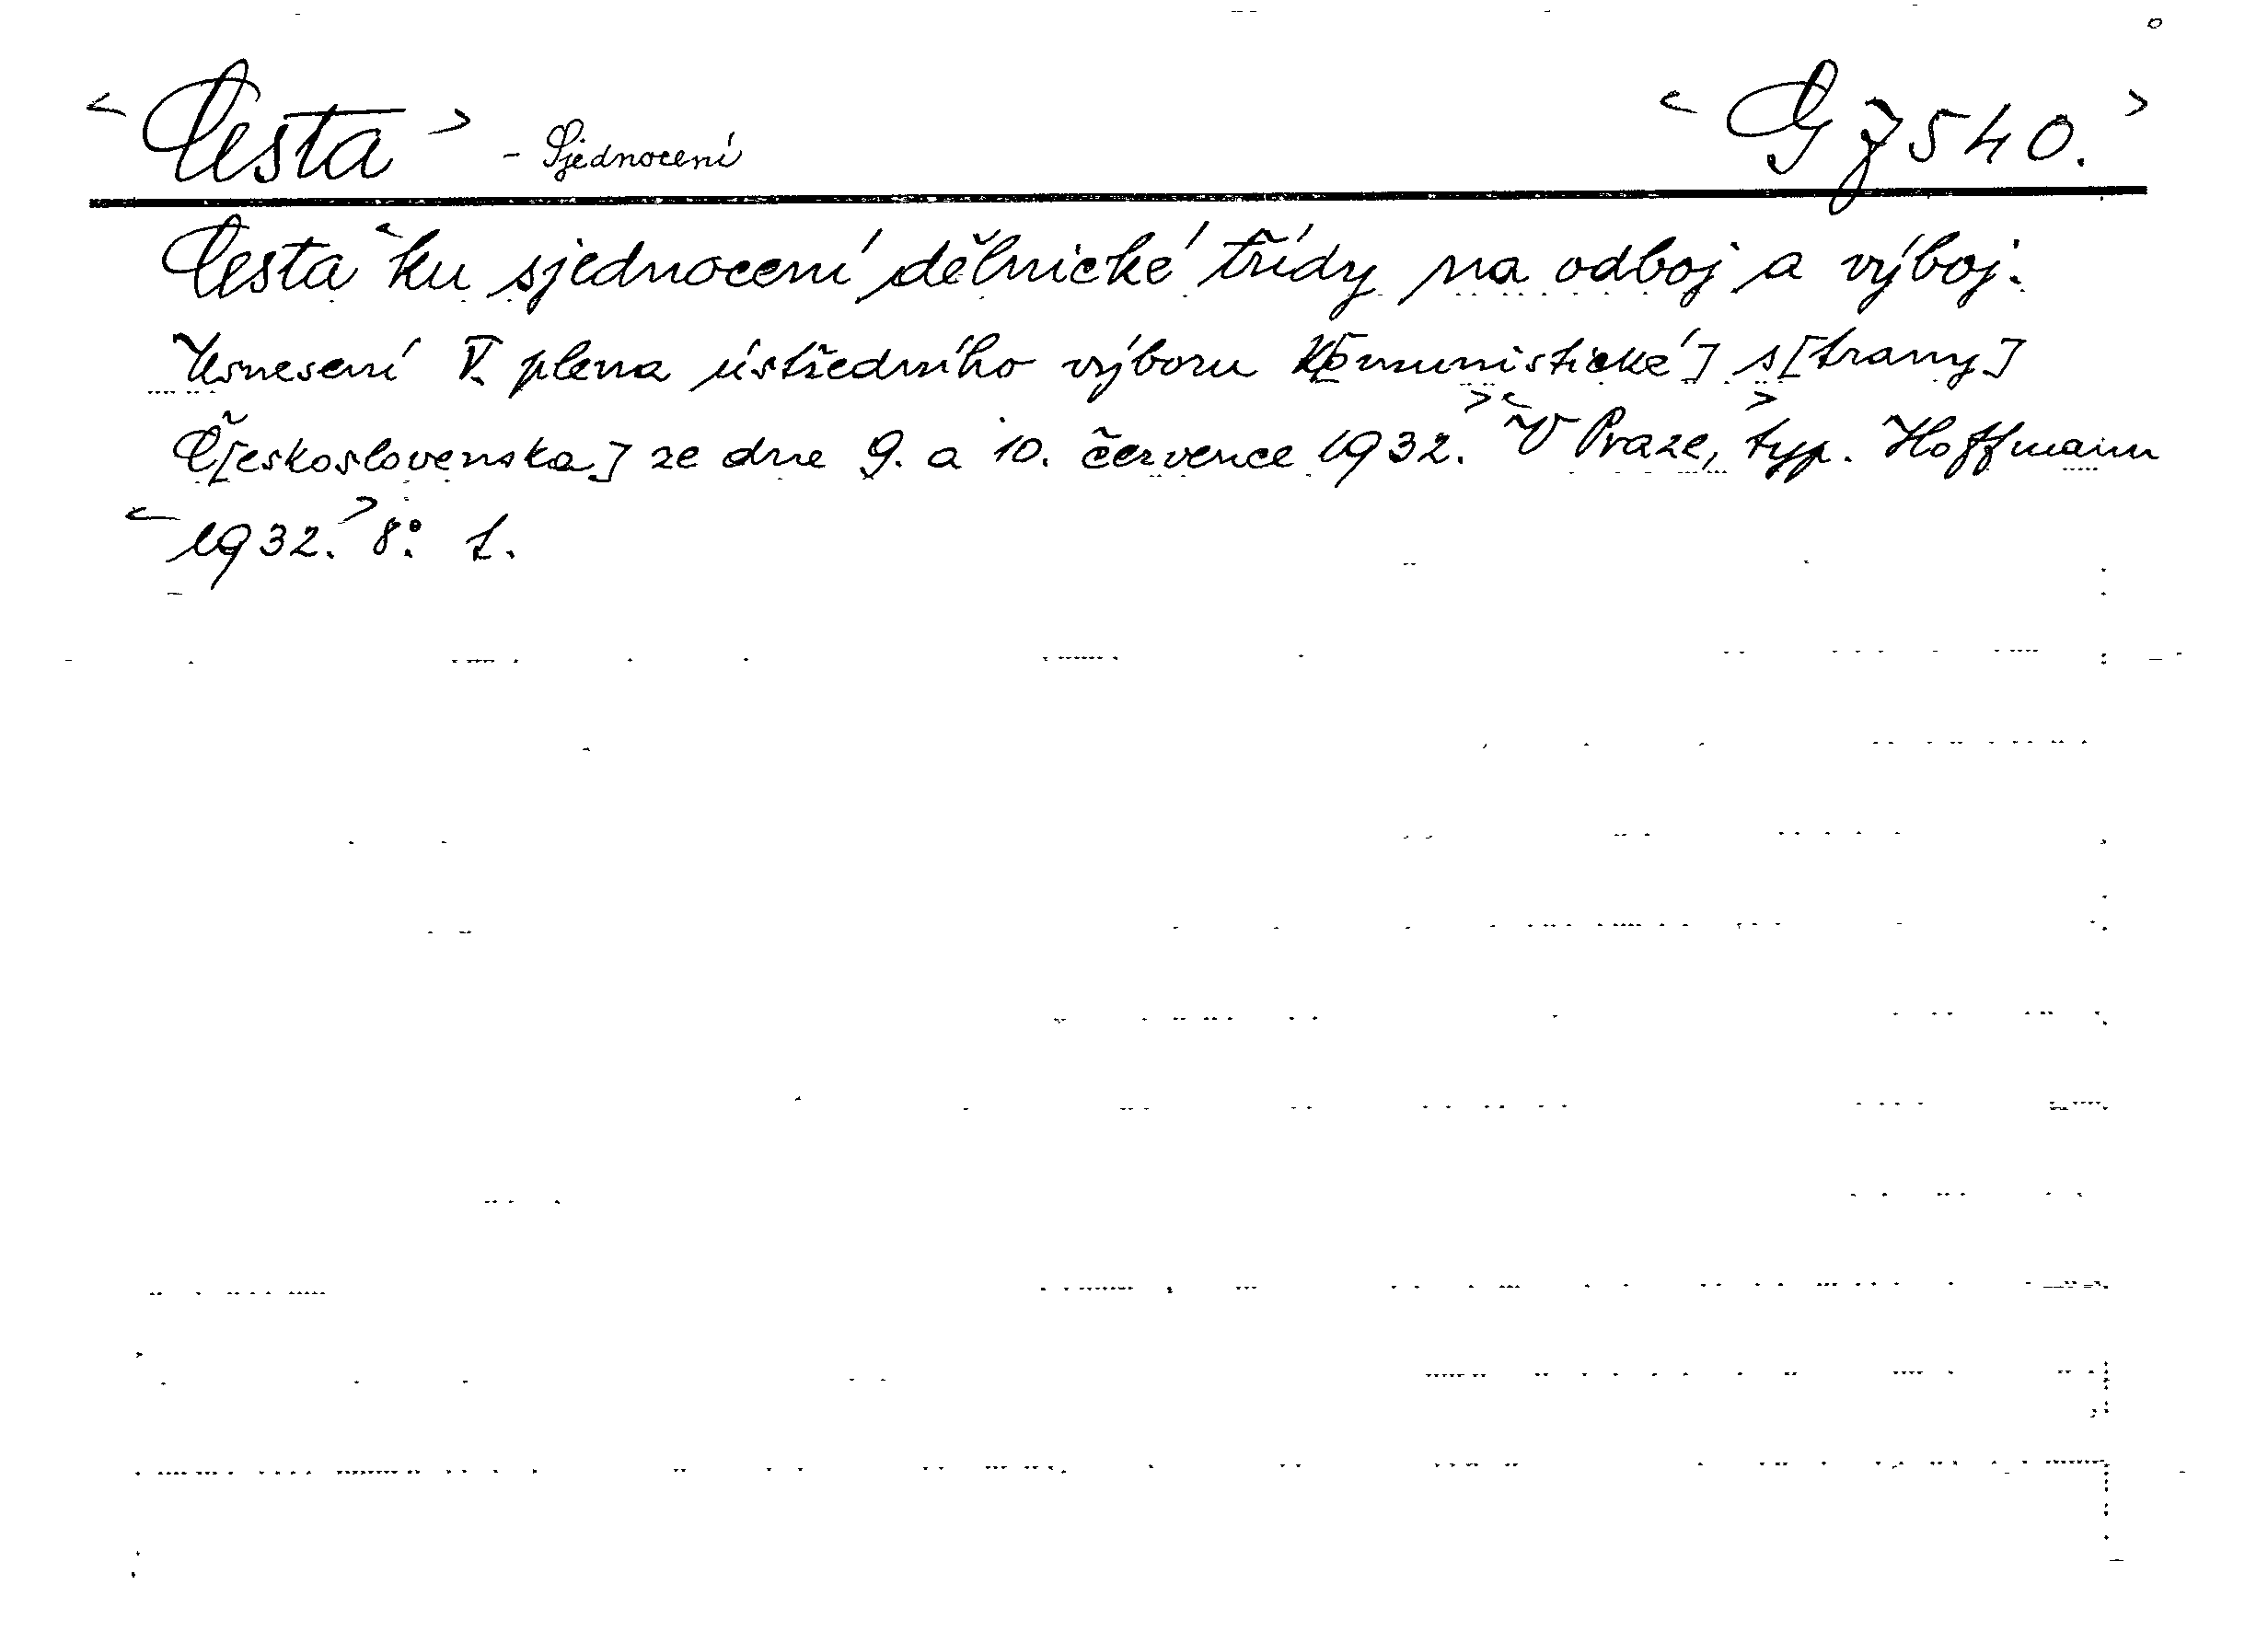 <Cesta> - Sjednocení <G 7540.>
Cesta <ku sjednocení dělnické třídy na odboj a výboj.
Usnesení V. plena ústředního výboru K[omunistické] s[trany]
Č[eskoslovenska] ze dne 9. a 10. července 1932.> <V Praze,> typ. Hoffmann
<1932.> 8°. 1.